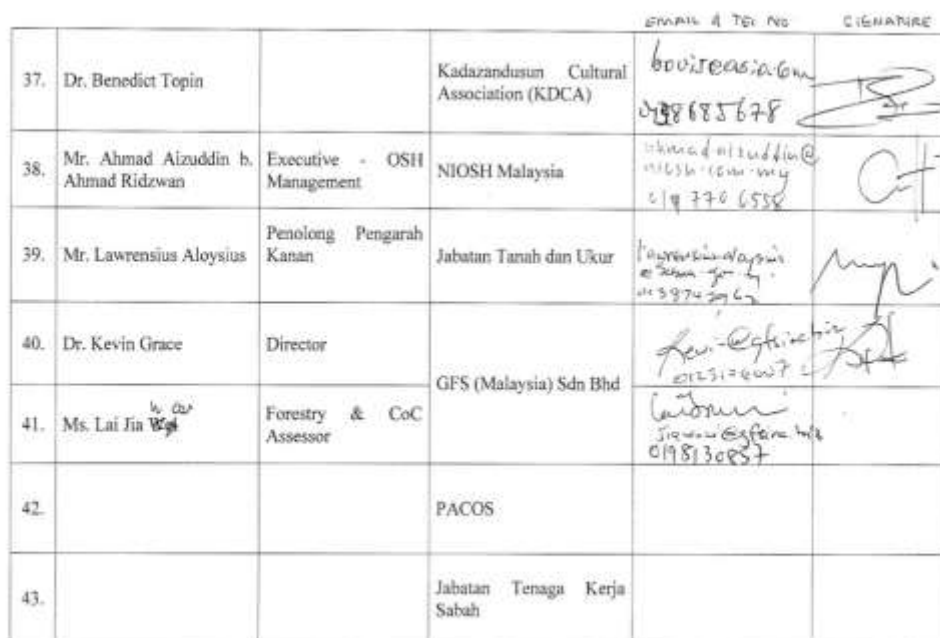 EMAIL & TEL NO
SIGNATURE
37.
Dr. Benedict Topin
Kadazandusun Cultural
Association (KDCA)
38.
Mr. Ahmad Aizuddin b.
Ahmad Ridzwan
Executive - OSH
Management
NIOSH Malaysia
ahmadaizuddin@
niosh.com.my
019 770 6558
39.
Mr. Lawrensius Aloysius
Penolong Pengarah
Kanan
Jabatan Tanah dan Ukur
40.
Dr. Kevin Grace
Director
GFS (Malaysia) Sdn Bhd
41.
Ms. Lai Jia
Forestry & CoC
Assessor
0198130857
42.
PACOS
43.
Jabatan Tenaga Kerja
Sabah